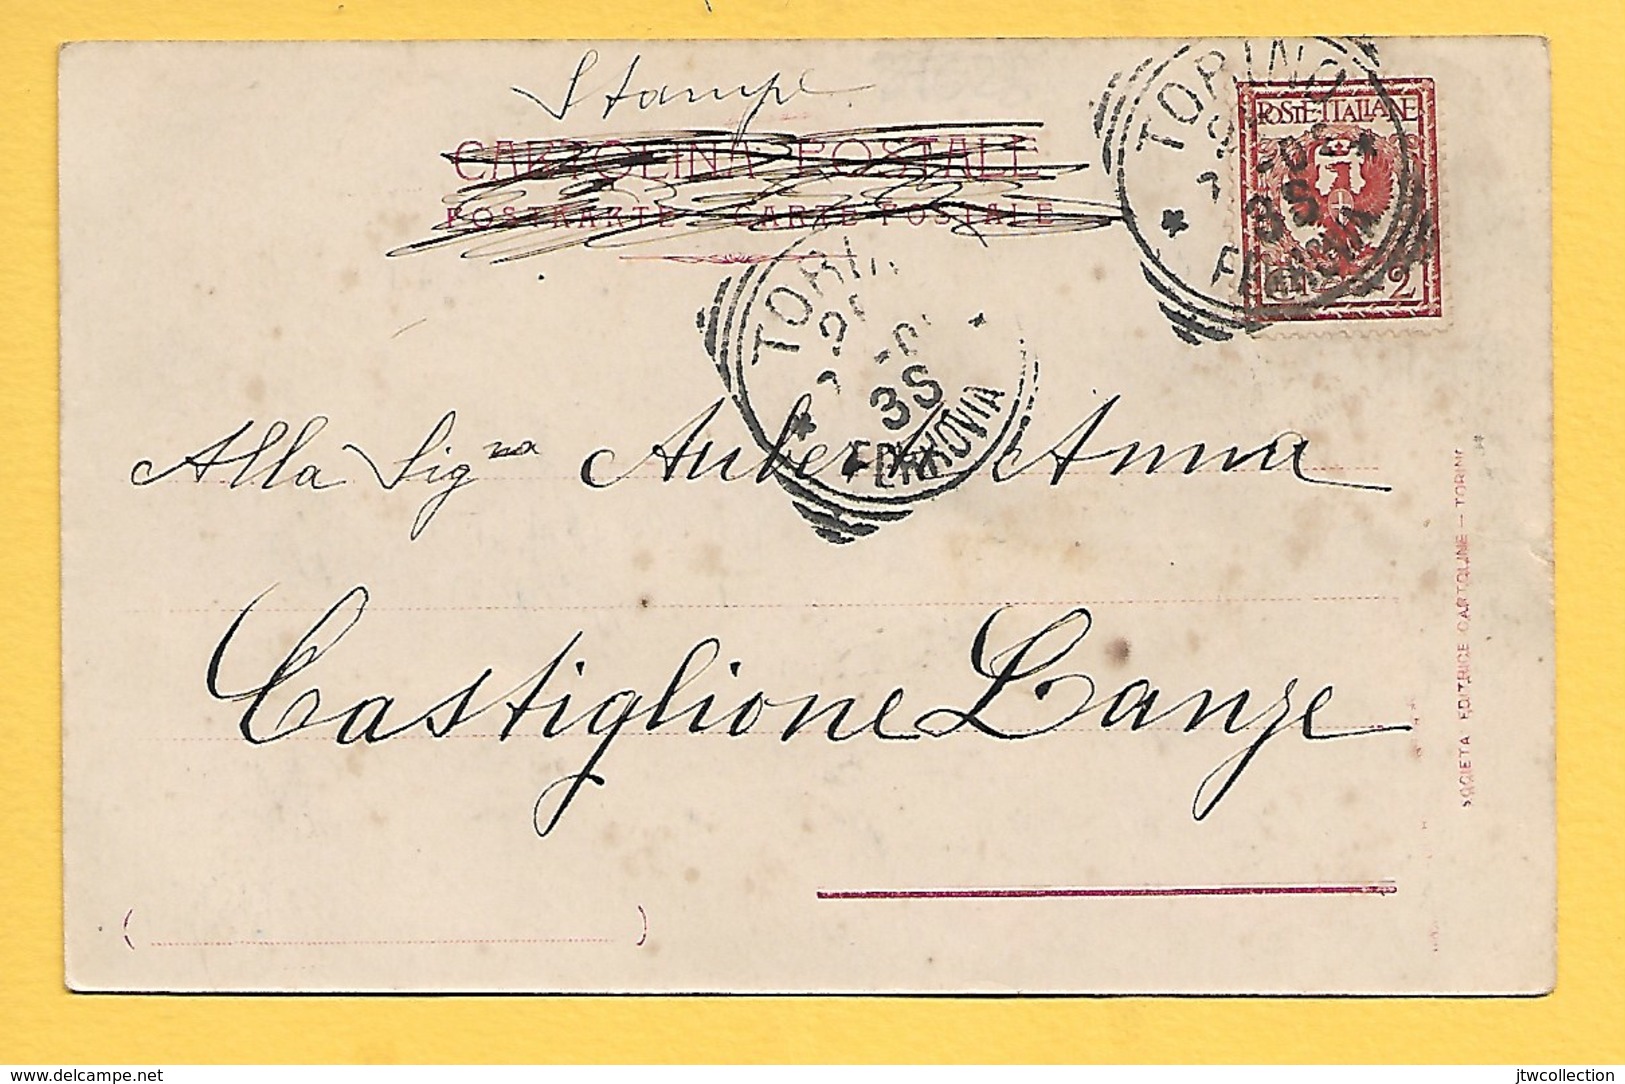 Stampe
CARTOLINA POSTALE
POSTKARTE - CARTE POSTALE
TORINO
FERROVIA
3S
POSTE·ITALIANE
2
TORIN
3S
FERROVIA
Alla Sigra Aubert Anna
Castiglione Lanze
SOCIETA EDITRICE CARTOLINE — TORINO
delcampe.net
jtwcollection